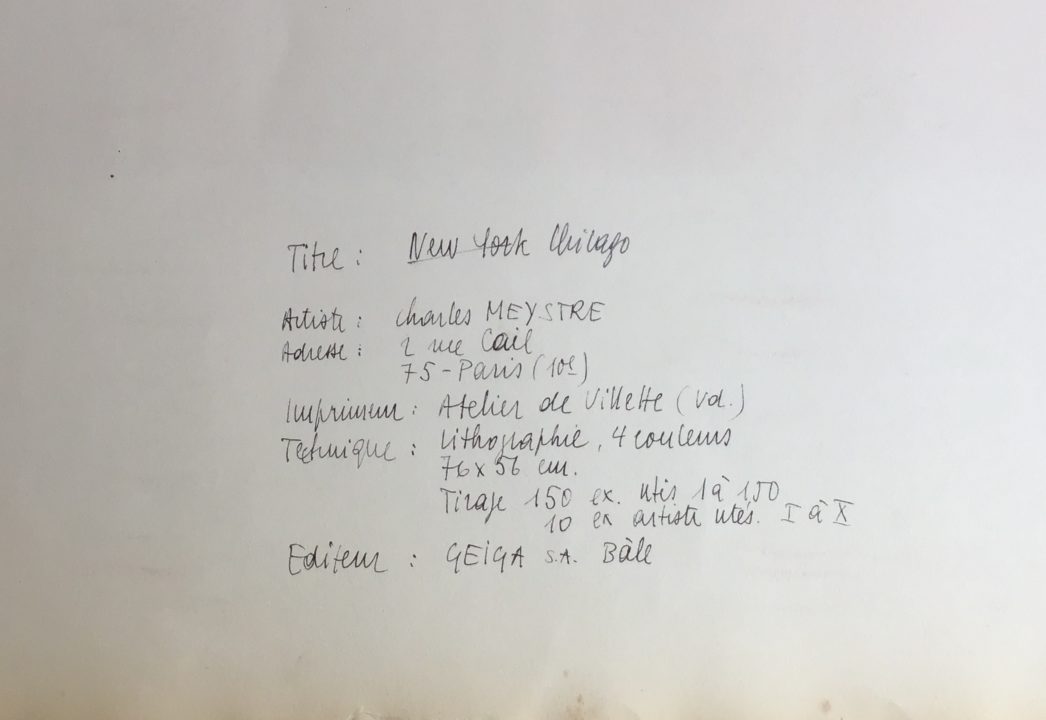 Titre : New York Chicago
Artiste : Charles MEYSTRE
Adresse : 2 rue Cail
75-Paris (10e)
Imprimeur : Atelier de Villette (Vd.)
Technique : Lithographie, 4 couleurs
76 x 56 cm.
Tirage 150 ex. ntés 1 à 150
10 ex artiste ntés. I à X
Editeur : GEIGA S.A. Bâle